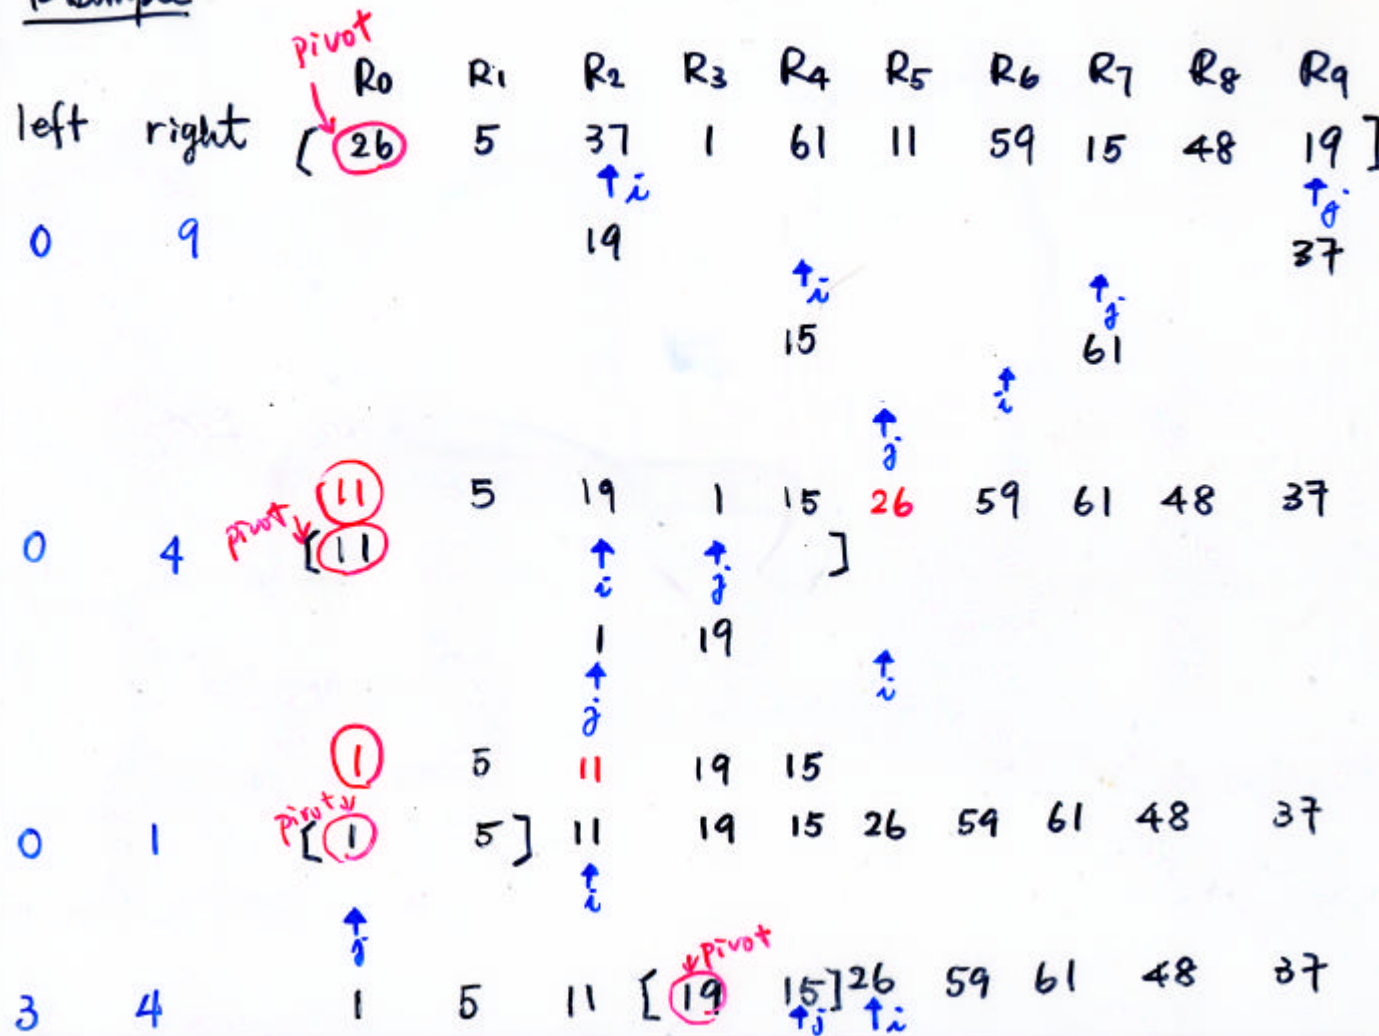 Example
pivot
R0 R1 R2 R3 R4 R5 R6 R7 R8 R9
left right [ 26 5 37 1 61 11 59 15 48 19 ]
↑i ↑j
0 9 19 37
↑i ↑j
15 61
↑i
↑j
11 5 19 1 15 26 59 61 48 37
pivot
0 4 [ 11 ]
↑i ↑j
1 19
↑j ↑i
1 5 11 19 15
pivot
0 1 [ 1 5 ] 11 19 15 26 59 61 48 37
↑i
↑j
pivot
3 4 1 5 11 [ 19 15 ] 26 59 61 48 37
↑j ↑i